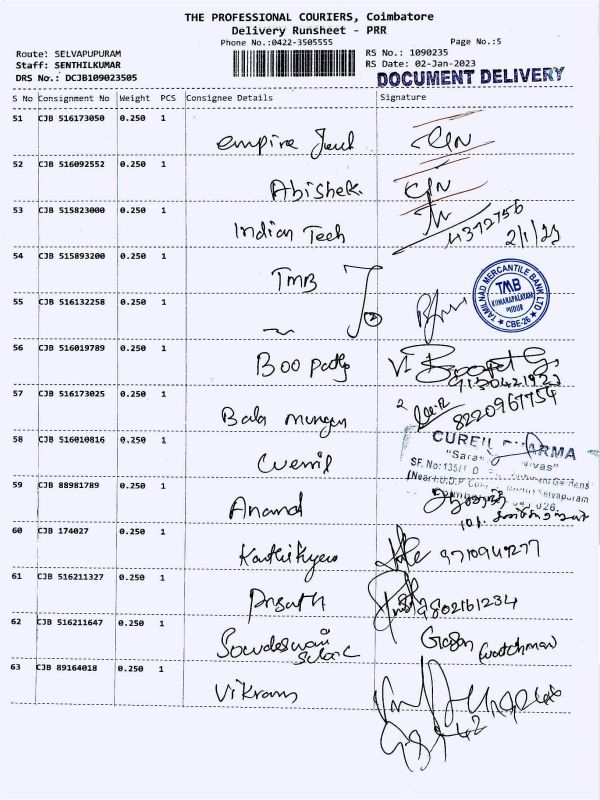 THE PROFESSIONAL COURIERS, Coimbatore
Delivery Runsheet - PRR
Phone No.:0422-3505555
Page No.:5
Route: SELVAPUPURAM
RS No.: 1090235
Staff: SENTHILKUMAR
RS Date: 02-Jan-2023
DRS No.: DCJB109023505
DOCUMENT DELIVERY
S No Consignment No Weight PCS Consignee Details Signature
51 CJB 516173050 0.250 1
empire
52 CJB 516092552 0.250 1
Abishek
53 CJB 515823000 0.250 1
Indian Tech
2/1/23
54 CJB 515893200 0.250 1
TMB
TAMILNAD MERCANTILE BANK LTD
TMB
KUMARAPALAYAM
PUDUR
CBE-26
55 CJB 516132258 0.250 1
56 CJB 516019789 0.250 1
Boo pathy
57 CJB 516173025 0.250 1
8220967754
Bala murugan
58 CJB 516010816 0.250 1
CUREIL PHARMA
59 CJB 88981789 0.250 1
Selvapuram
Anand
60 CJB 174027 0.250 1
Karthikyen
9710949277
61 CJB 516211327 0.250 1
Prisath
9802161234
62 CJB 516211647 0.250 1
Sowdeswari
(watchman)
63 CJB 89164018 0.250 1
Vikram